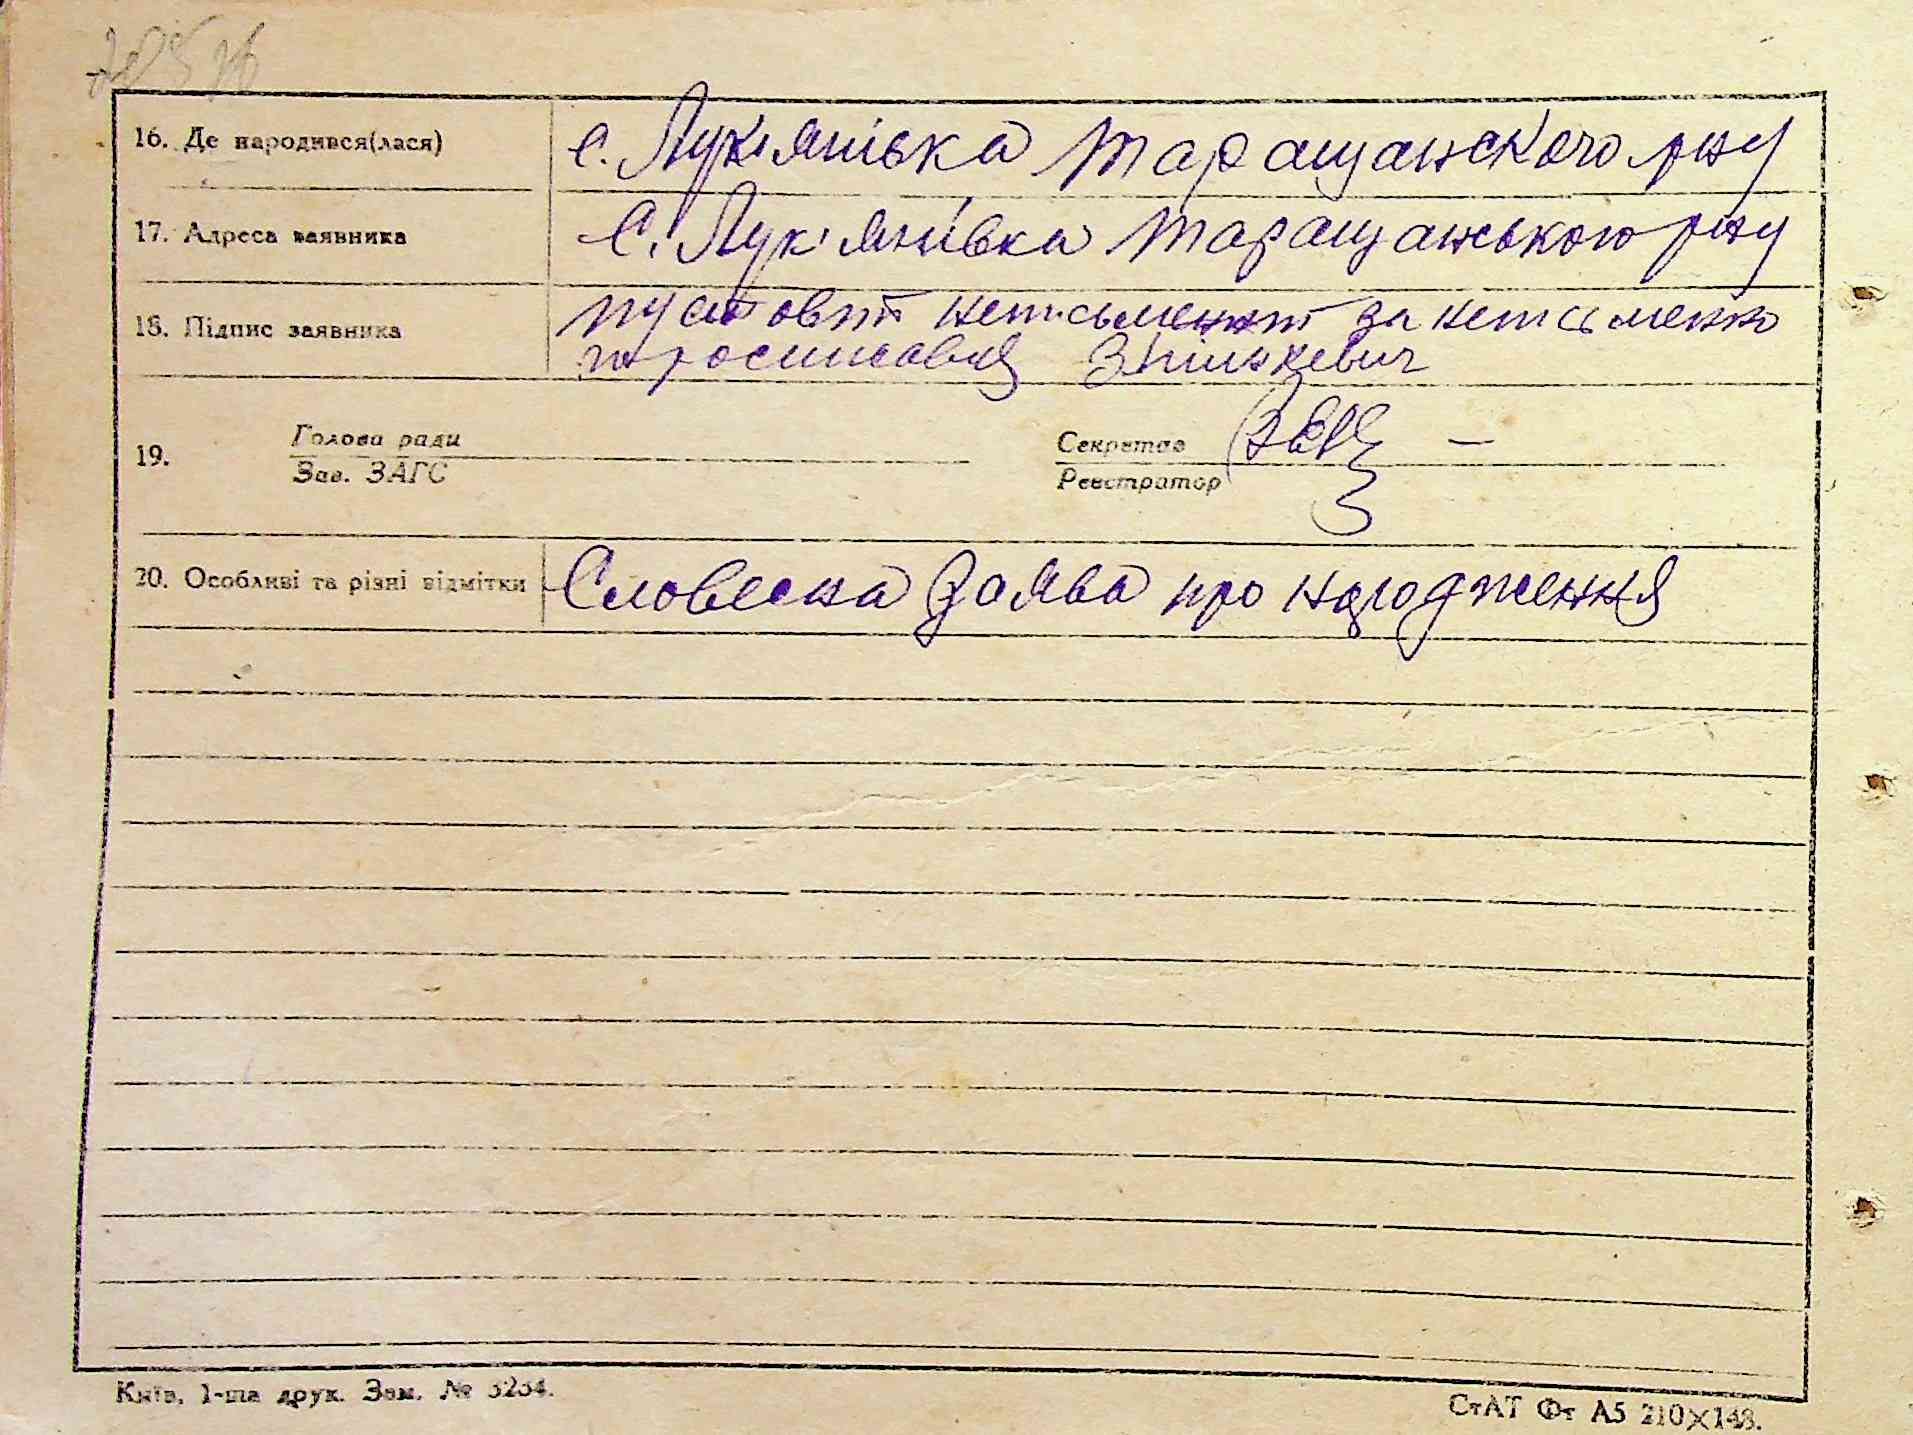 16. Де народився(лася) с. Лук'янівка Таращанского р-ну
17. Адреса заявника с. Лук'янівка Таращанського р-ну
18. Підпис заявника Пустовіт неписьменний за неписьменно
росписався Зінькевич
19. Голова ради Секретар
Зав. ЗАГС Реєстратор
20. Особливі та різні відмітки Словесна заява про народження
Київ, 1-ша друк. Зам. № 3234.
СтАТ Фт А5 210×148.